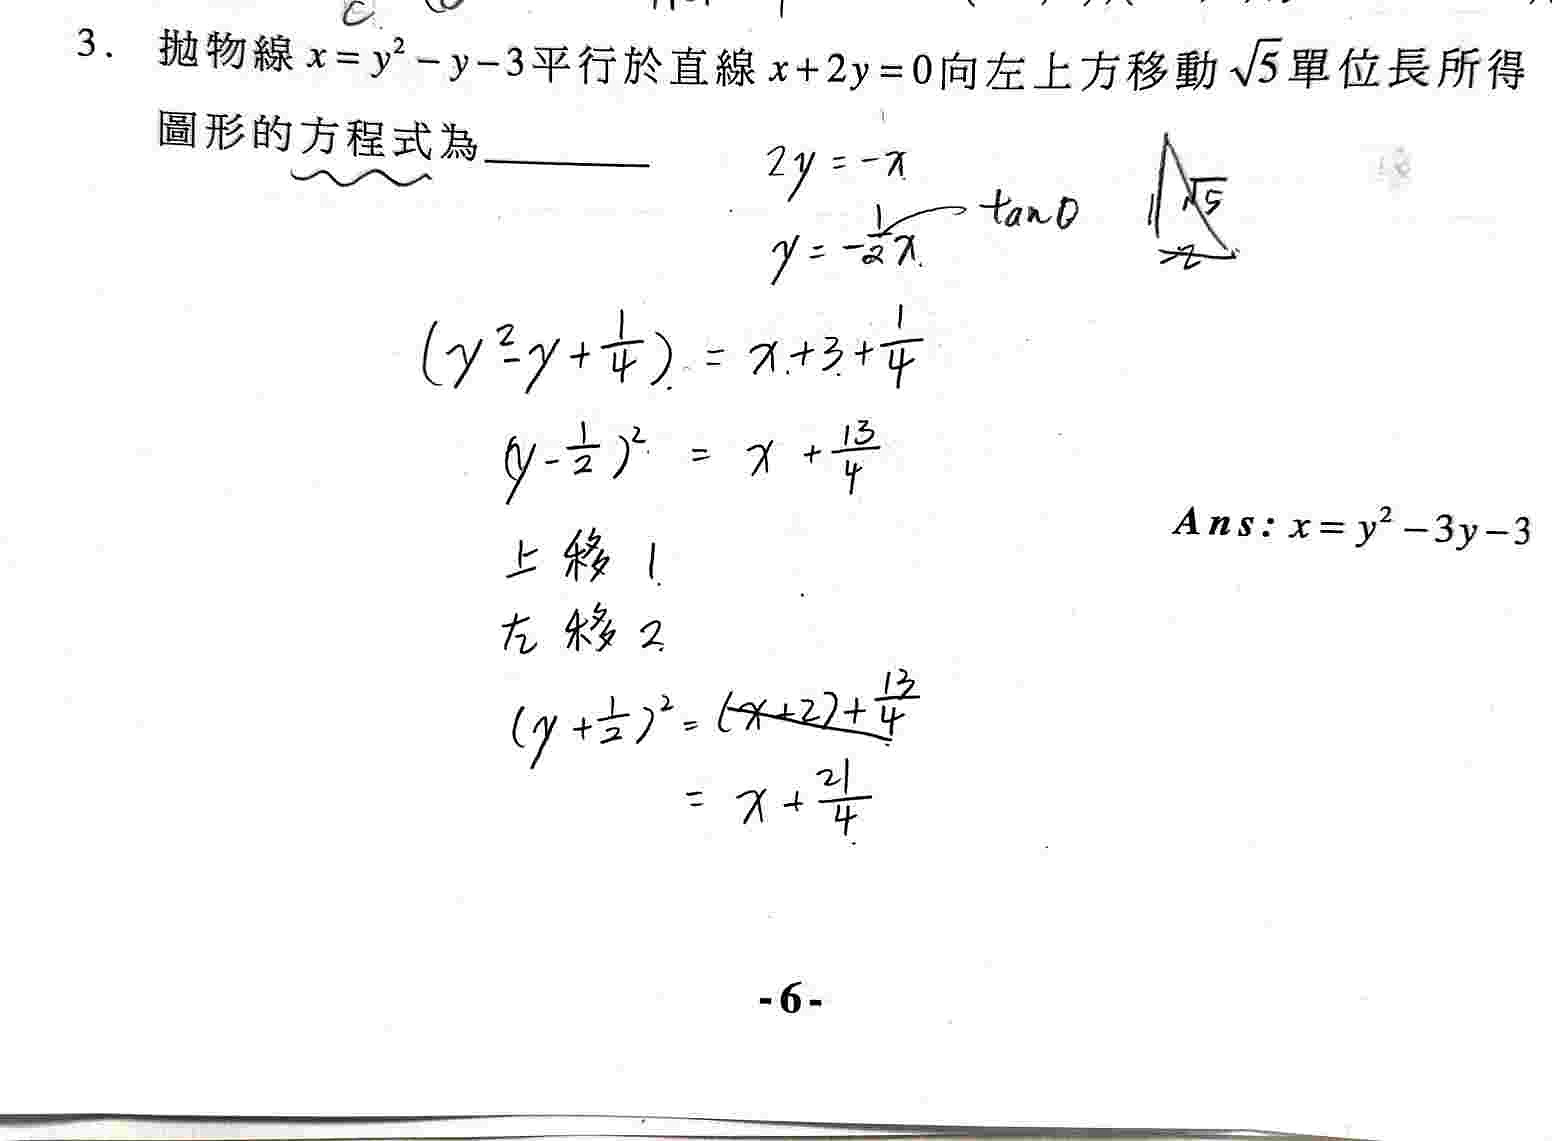 3. 拋物線 x = y² − y − 3 平行於直線 x + 2y = 0 向左上方移動 √5 單位長所得
圖形的方程式為________
2y = -x
y = -1/2 x tanθ
1 √5
2
(y² - y + 1/4) = x + 3 + 1/4
(y - 1/2)² = x + 13/4
Ans: x = y² − 3y − 3
上移 1
左移 2
(y + 1/2)² = (x + 2) + 13/4
= x + 21/4
- 6 -